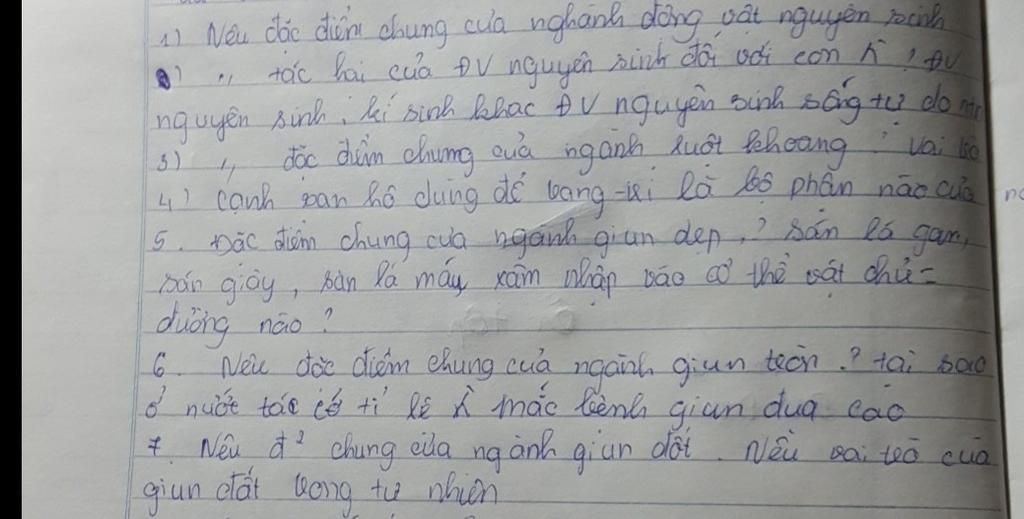 1) Nêu đặc điểm chung của nghành động vật nguyên sinh
2) ,, tác hại của ĐV nguyên sinh đối với con ? ĐV
nguyên sinh kí sinh khác ĐV nguyên sinh sống tự do
3) ,, đặc điểm chung của ngành ruột khoang ? Vai
4) Cành san hô dùng để trang trí là bộ phận nào của
5. Đặc điểm chung của ngành giun dẹp, ? Sán lá gan,
sán giây, sán lá máu xâm nhập vào cơ thể vật chủ =
đường nào ?
6. Nêu đặc điểm chung của ngành giun tròn ? tại sao
ở nước có tỉ lệ mắc bệnh giun đũa cao
7. Nêu đ² chung của ngành giun đốt. Nêu vai trò của
giun đất trong tự nhiên